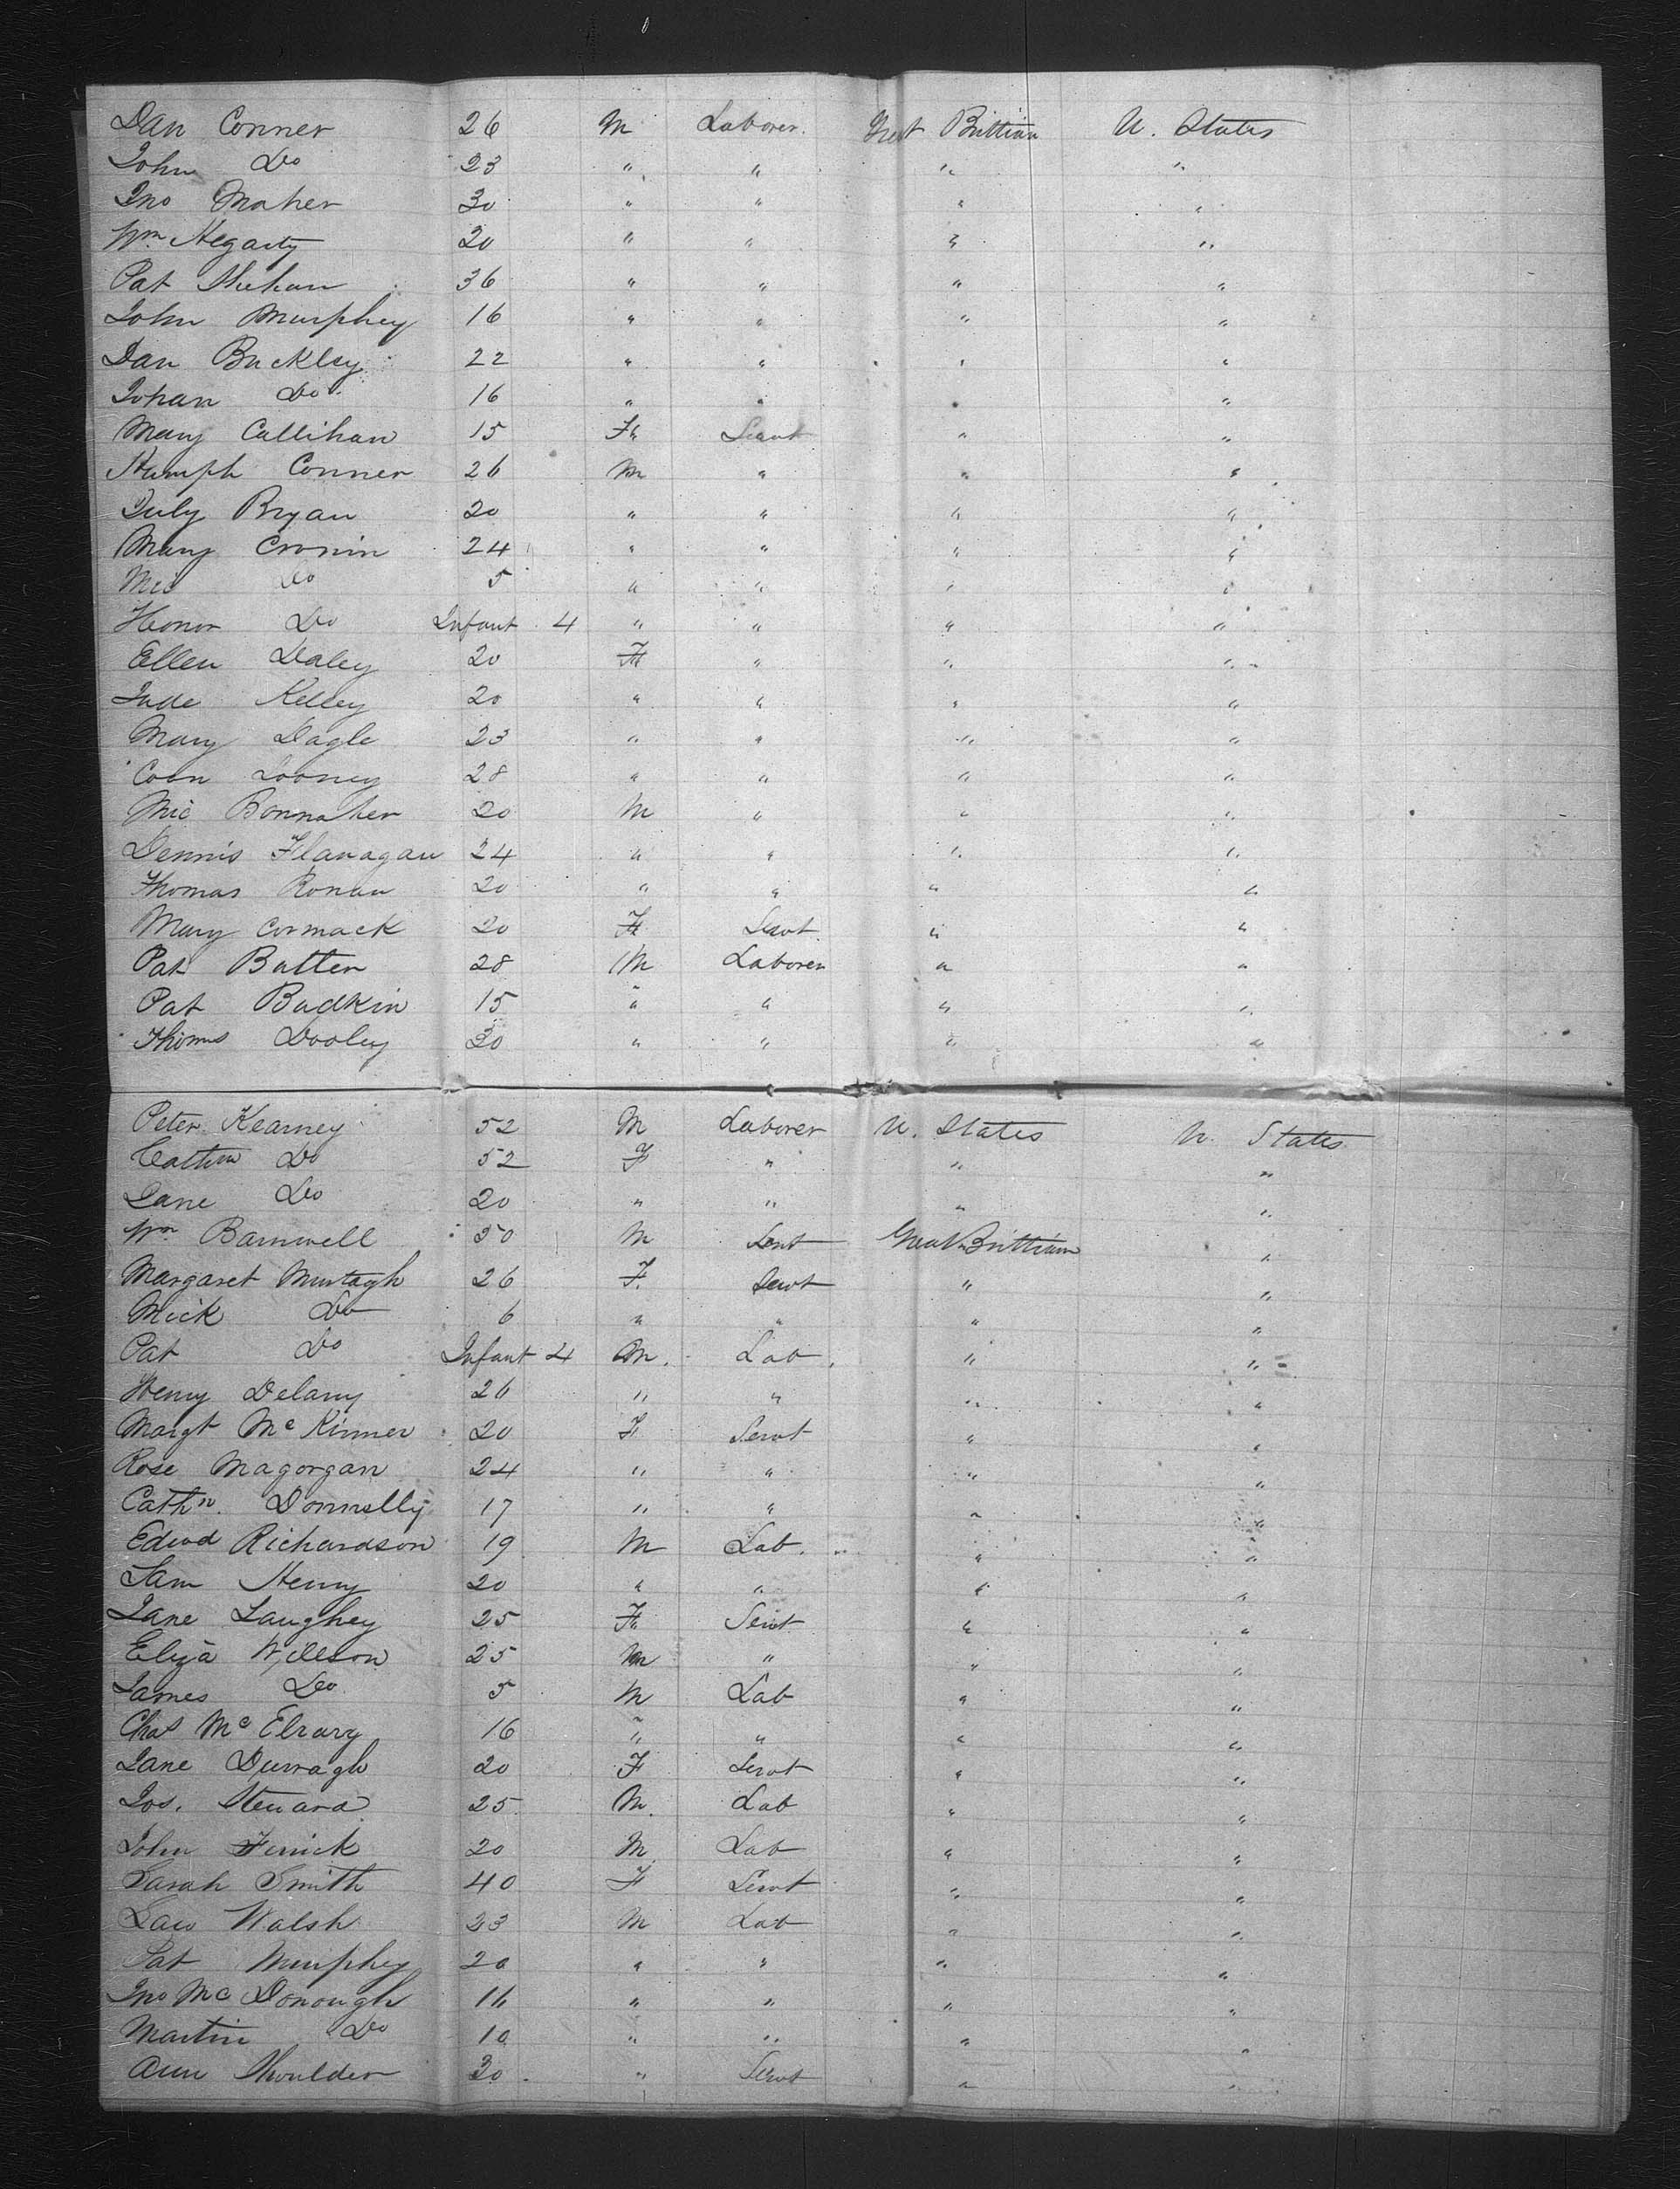 Dan Conner 26 M Laborer. Great Brittian U. States
John Do 23 " " " "
Jno Maher 30 " " " "
Wm. Hegarty 20 " " " "
Pat Shehan 36 " " " "
John Murphey 16 " " " "
Dan Buckley 22 " " " "
Johan Do 16 " " " "
Mary Callihan 15 F Servt " "
Humph Conner 26 M " " "
July Bryan 20 " " " "
Mary Cronin 24 " " " "
Mic Do 5 " " " "
Honor Do Infant 4 " " " "
Ellen Daley 20 F " " "
Jude Kelley 20 " " " "
Mary Dagle 23 " " " "
Coon Looney 28 " " " "
Mic Bonnaher 20 M " " "
Dennis Flanagan 24 " " " "
Thomas Ronan 20 " " " "
Mary Cormack 20 F Servt " "
Pat Butter 28 M Laborer " "
Pat Budkin 15 " " " "
Thomas Dooley 30 " " " "
Peter Kearney 52 M Laborer U. States U. States
Do 52 F " " "
Jane Do 20 " " " "
Wm Barnwell 50 M Servt Great Brittian "
Margaret Murtagh 26 F. Servt " "
Mick Do 6 " " " "
Pat Do Infant 4 M. Lab. " "
Henry Delany 26 " " " "
Margt McKinner 20 F Servt " "
Rose Magorgan 24 " " " "
Cathn. Donnelly 17 " " " "
Edwd Richardson 19 M Lab. " "
Sam Henry 20 " " " "
Jane Laughey 25 F Servt " "
Eliza Willson 25 M " " "
James Do 5 M Lab " "
Chas McElrary 16 " " " "
Jane Durragh 20 F Servt " "
Jos. Steward 25 M. Lab " "
John Finick 20 M Lab " "
Sarah Smith 40 F Servt " "
Law Walsh 23 M Lab " "
Pat Murphey 20 " " " "
Jno McDonough 16 " " " "
Martin Do 10 " " " "
Ann Shoulder 30 " Servt " "